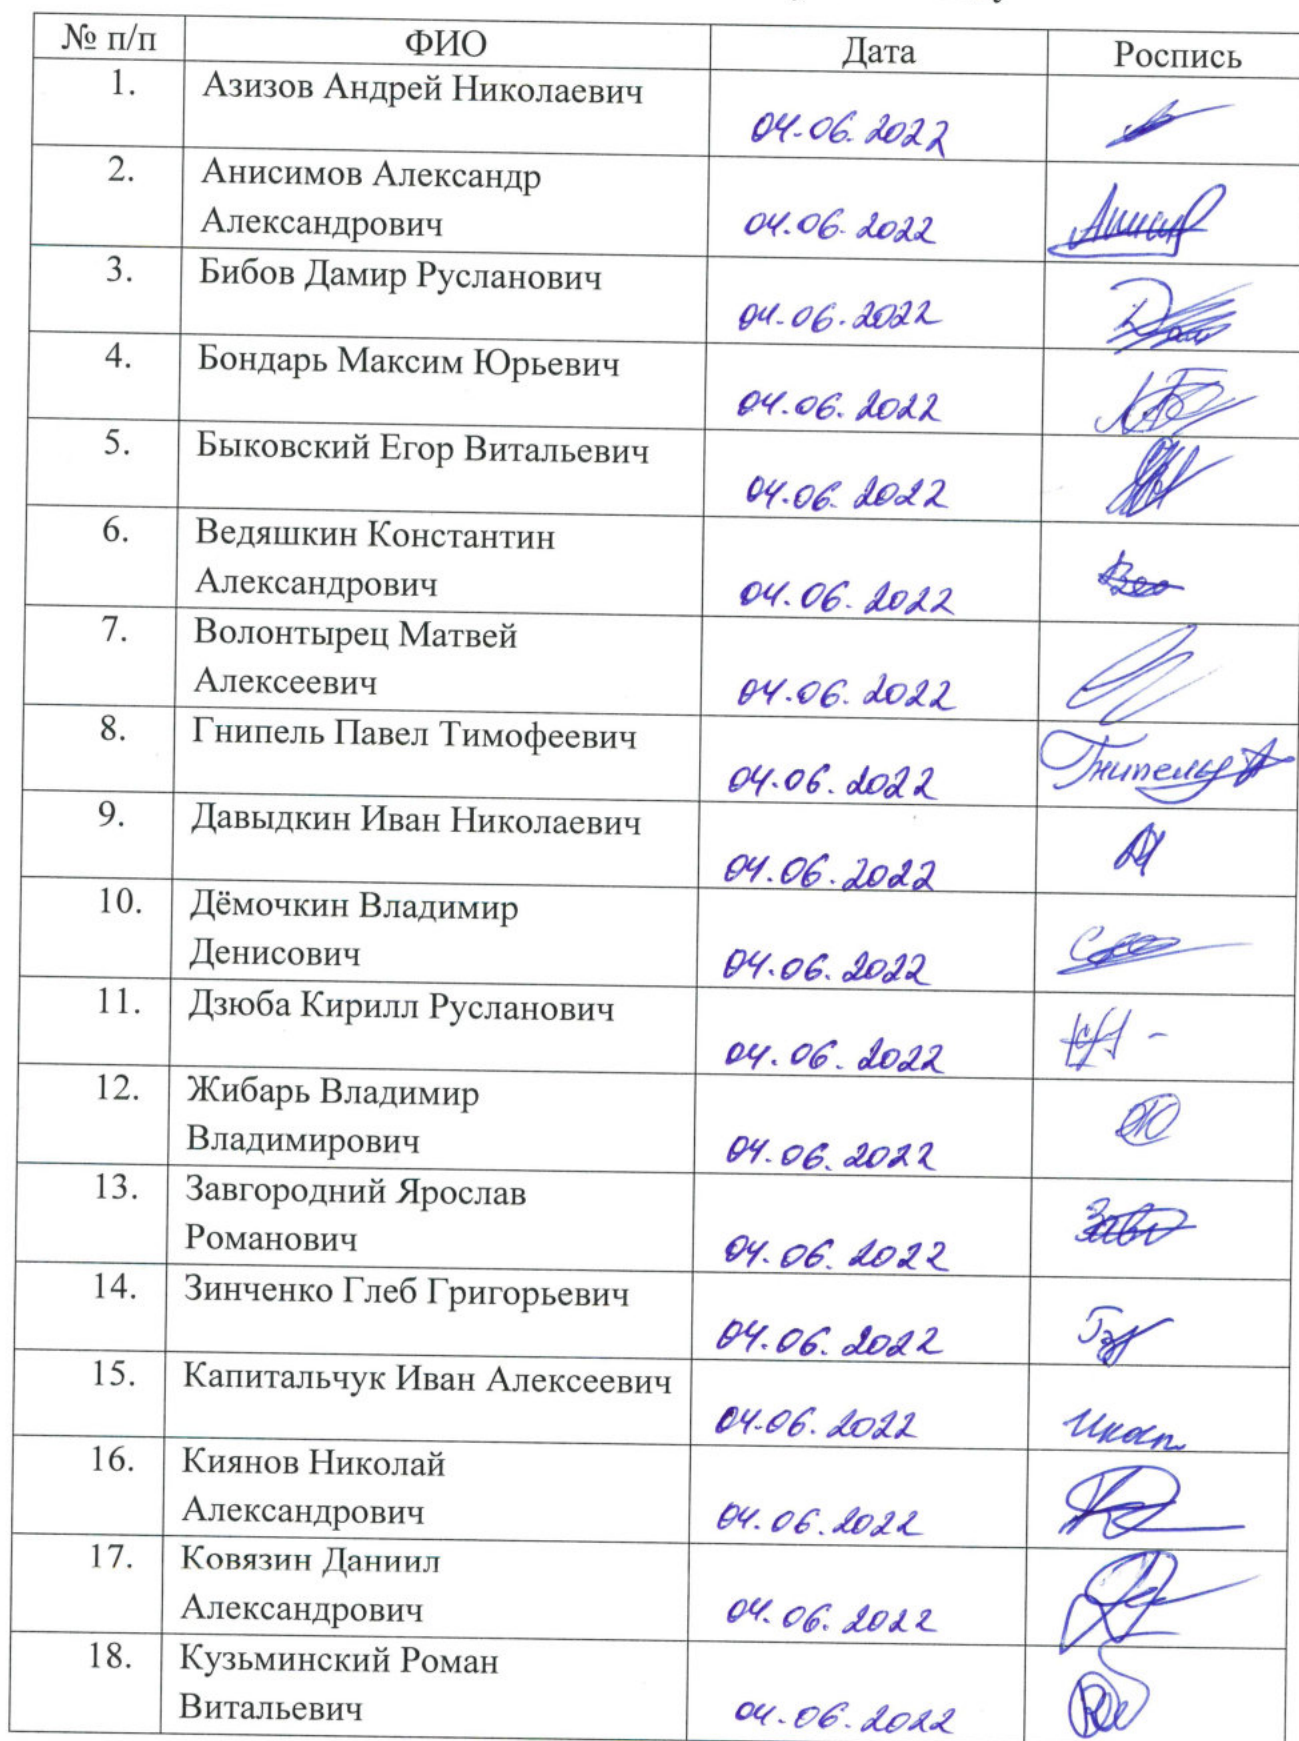 № п/п ФИО Дата Роспись
1. Азизов Андрей Николаевич
04.06.2022
2. Анисимов Александр
Александрович 04.06.2022
3. Бибов Дамир Русланович
04.06.2022
4. Бондарь Максим Юрьевич
04.06.2022
5. Быковский Егор Витальевич
04.06.2022
6. Ведяшкин Константин
Александрович 04.06.2022
7. Волонтырец Матвей
Алексеевич 04.06.2022
8. Гнипель Павел Тимофеевич
04.06.2022
9. Давыдкин Иван Николаевич
04.06.2022
10. Дёмочкин Владимир
Денисович 04.06.2022
11. Дзюба Кирилл Русланович
04.06.2022
12. Жибарь Владимир
Владимирович 04.06.2022
13. Завгородний Ярослав
Романович 04.06.2022
14. Зинченко Глеб Григорьевич
04.06.2022
15. Капитальчук Иван Алексеевич
04.06.2022
16. Киянов Николай
Александрович 04.06.2022
17. Ковязин Даниил
Александрович 04.06.2022
18. Кузьминский Роман
Витальевич 04.06.2022